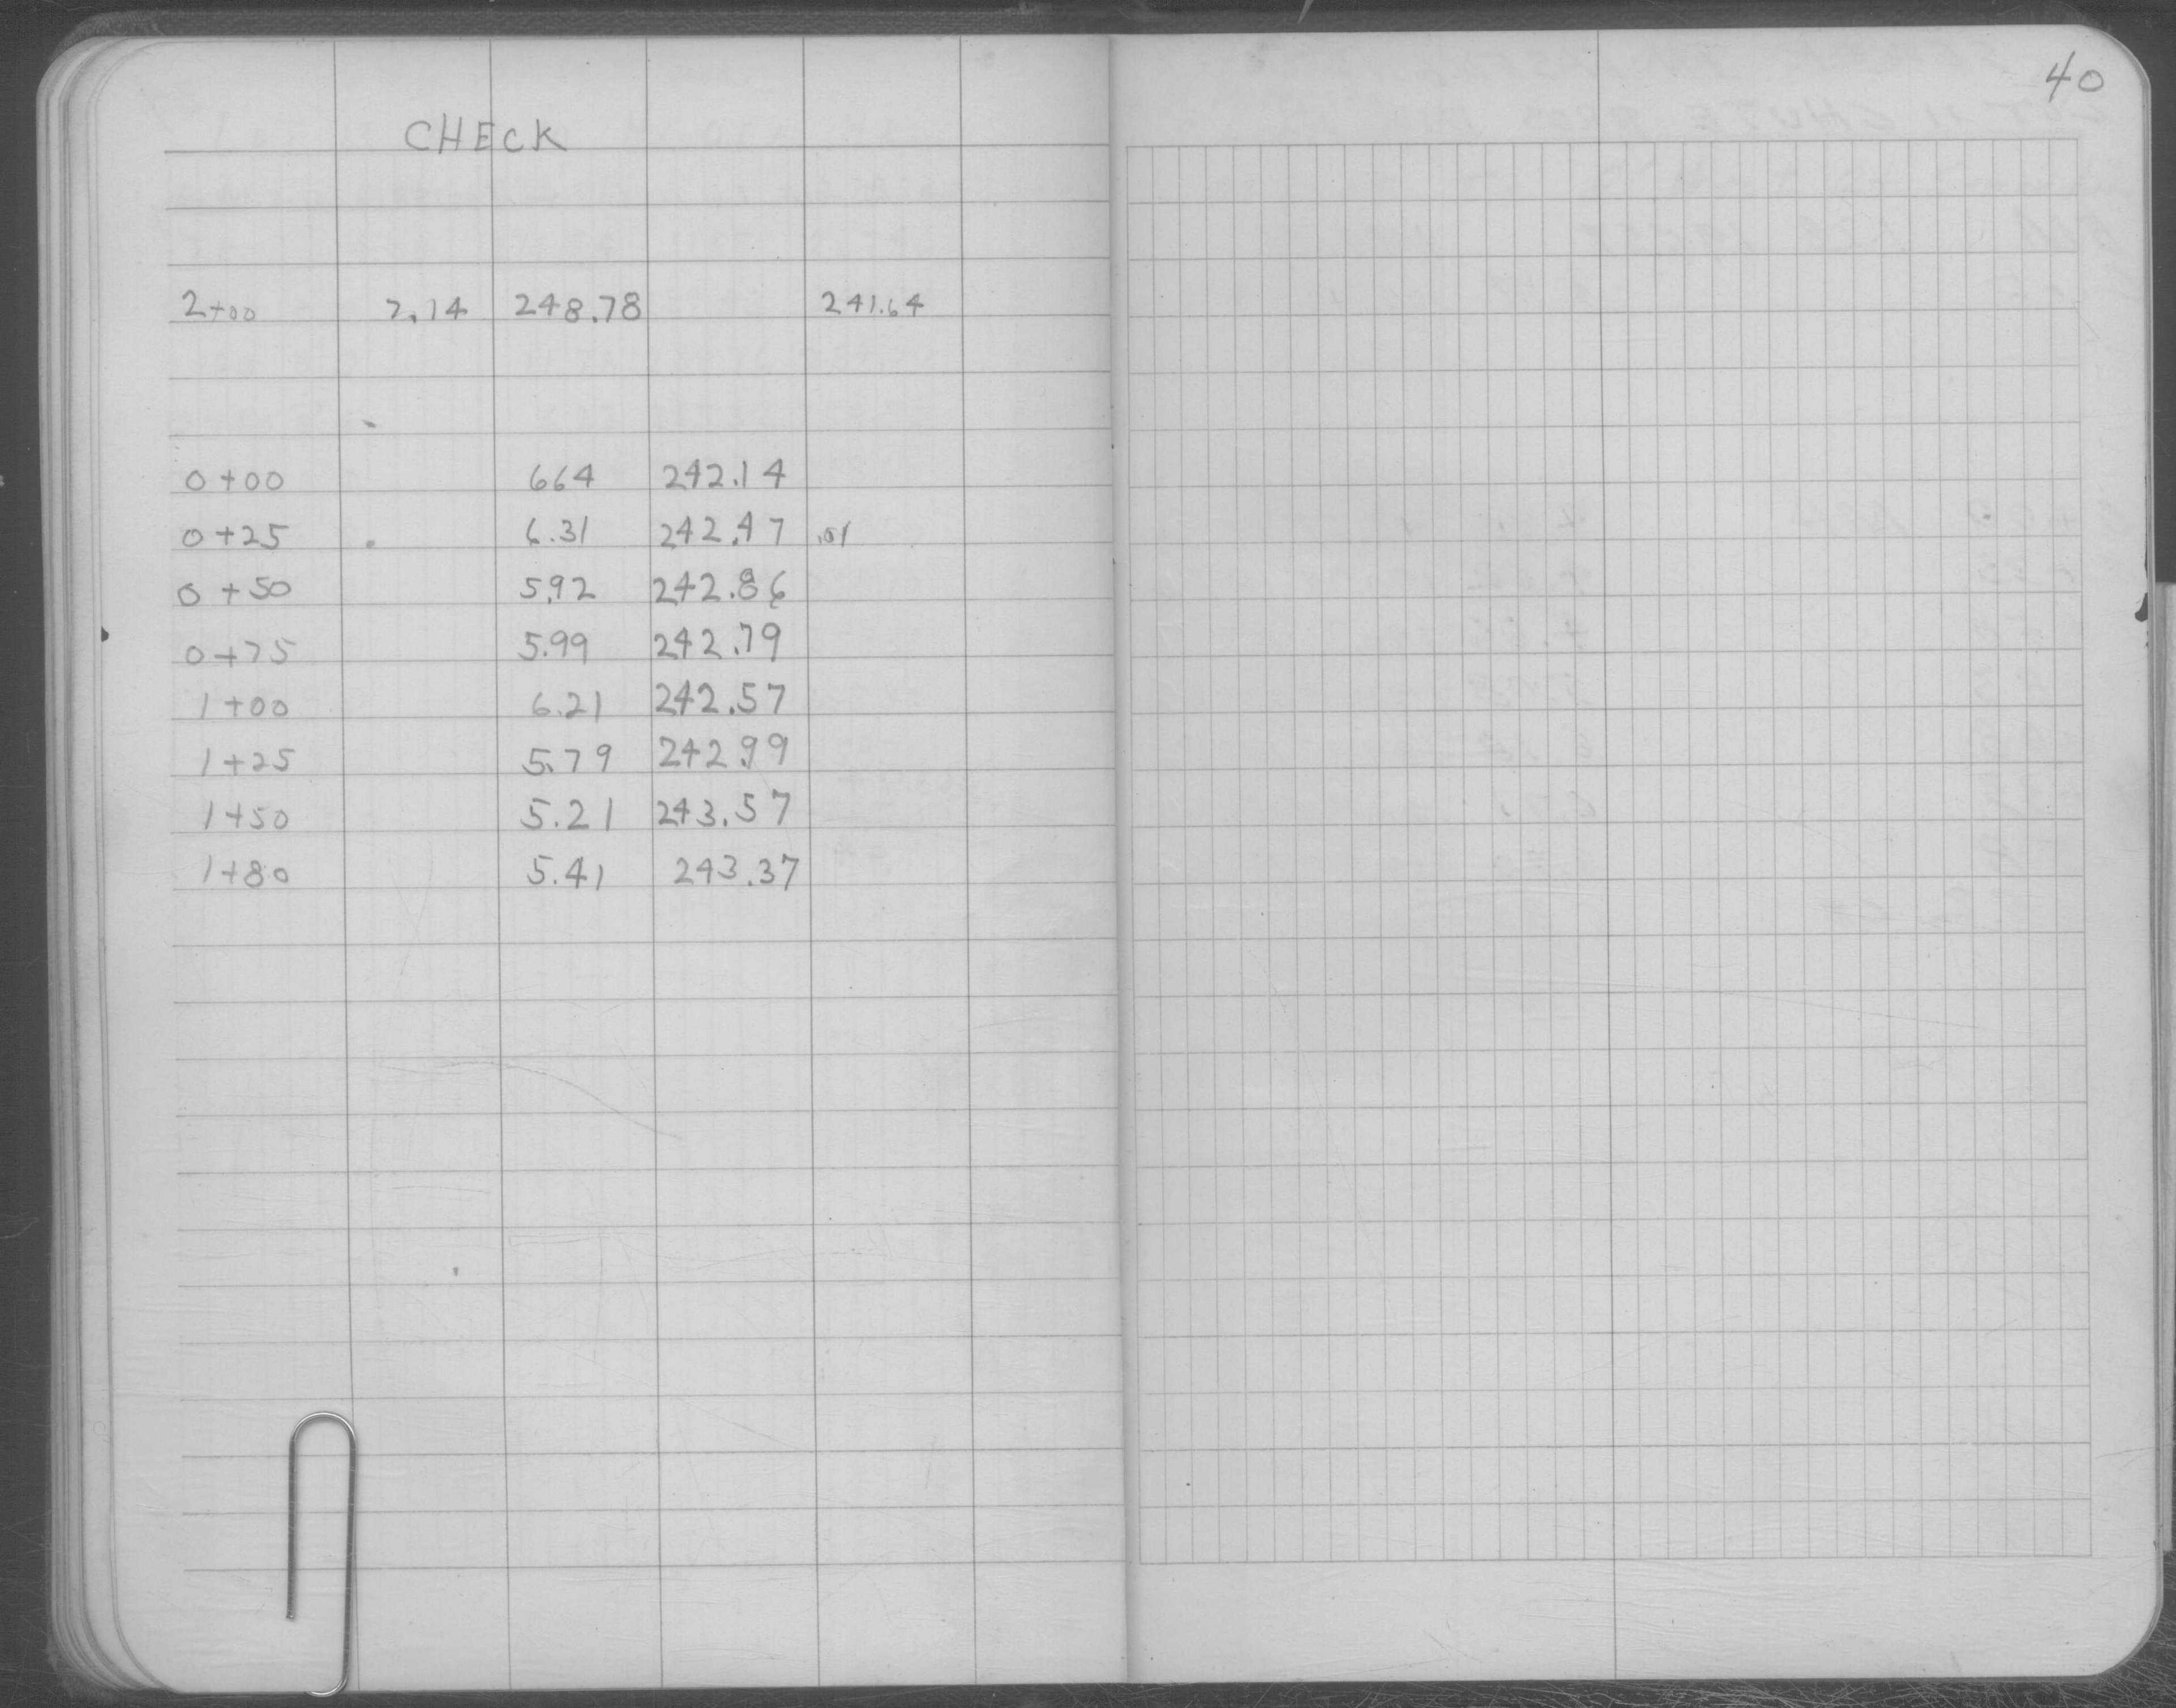 40
CHECK
2+00 7.14 248.78 241.64
0+00 664 242.14
0+25 6.31 242.47 .01
0+50 5.92 242.86
0+75 5.99 242.79
1+00 6.21 242.57
1+25 5.79 242.99
1+50 5.21 243.57
1+80 5.41 243.37